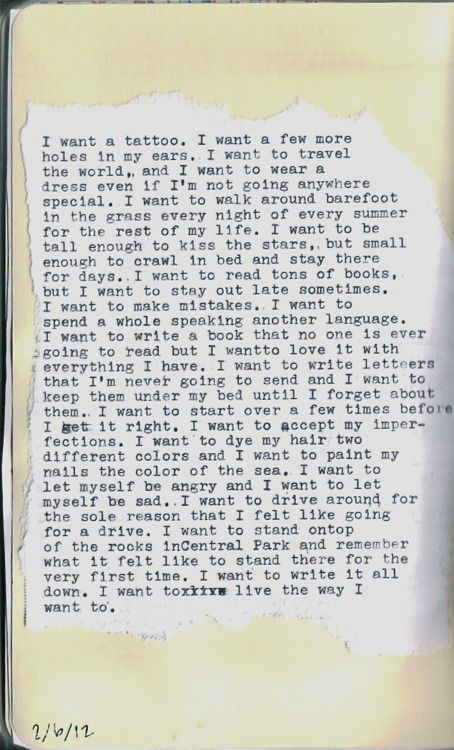 I want a tattoo. I want a few more
holes in my ears. I want to travel
the world, and I want to wear a
dress even if I'm not going anywhere
special. I want to walk around barefoot
in the grass every night of every summer
for the rest of my life. I want to be
tall enough to kiss the stars, but small
enough to crawl in bed and stay there
for days. I want to read tons of books,
but I want to stay out late sometimes.
I want to make mistakes. I want to
spend a whole speaking another language.
I want to write a book that no one is ever
going to read but I wantto love it with
everything I have. I want to write letteers
that I'm never going to send and I want to
keep them under my bed until I forget about
them. I want to start over a few times before
I get it right. I want to accept my imper-
fections. I want to dye my hair two
different colors and I want to paint my
nails the color of the sea. I want to
let myself be angry and I want to let
myself be sad. I want to drive around for
the sole reason that I felt like going
for a drive. I want to stand ontop
of the rocks inCentral Park and remember
what it felt like to stand there for the
very first time. I want to write it all
down. I want to live the way I
want to.
2/6/12